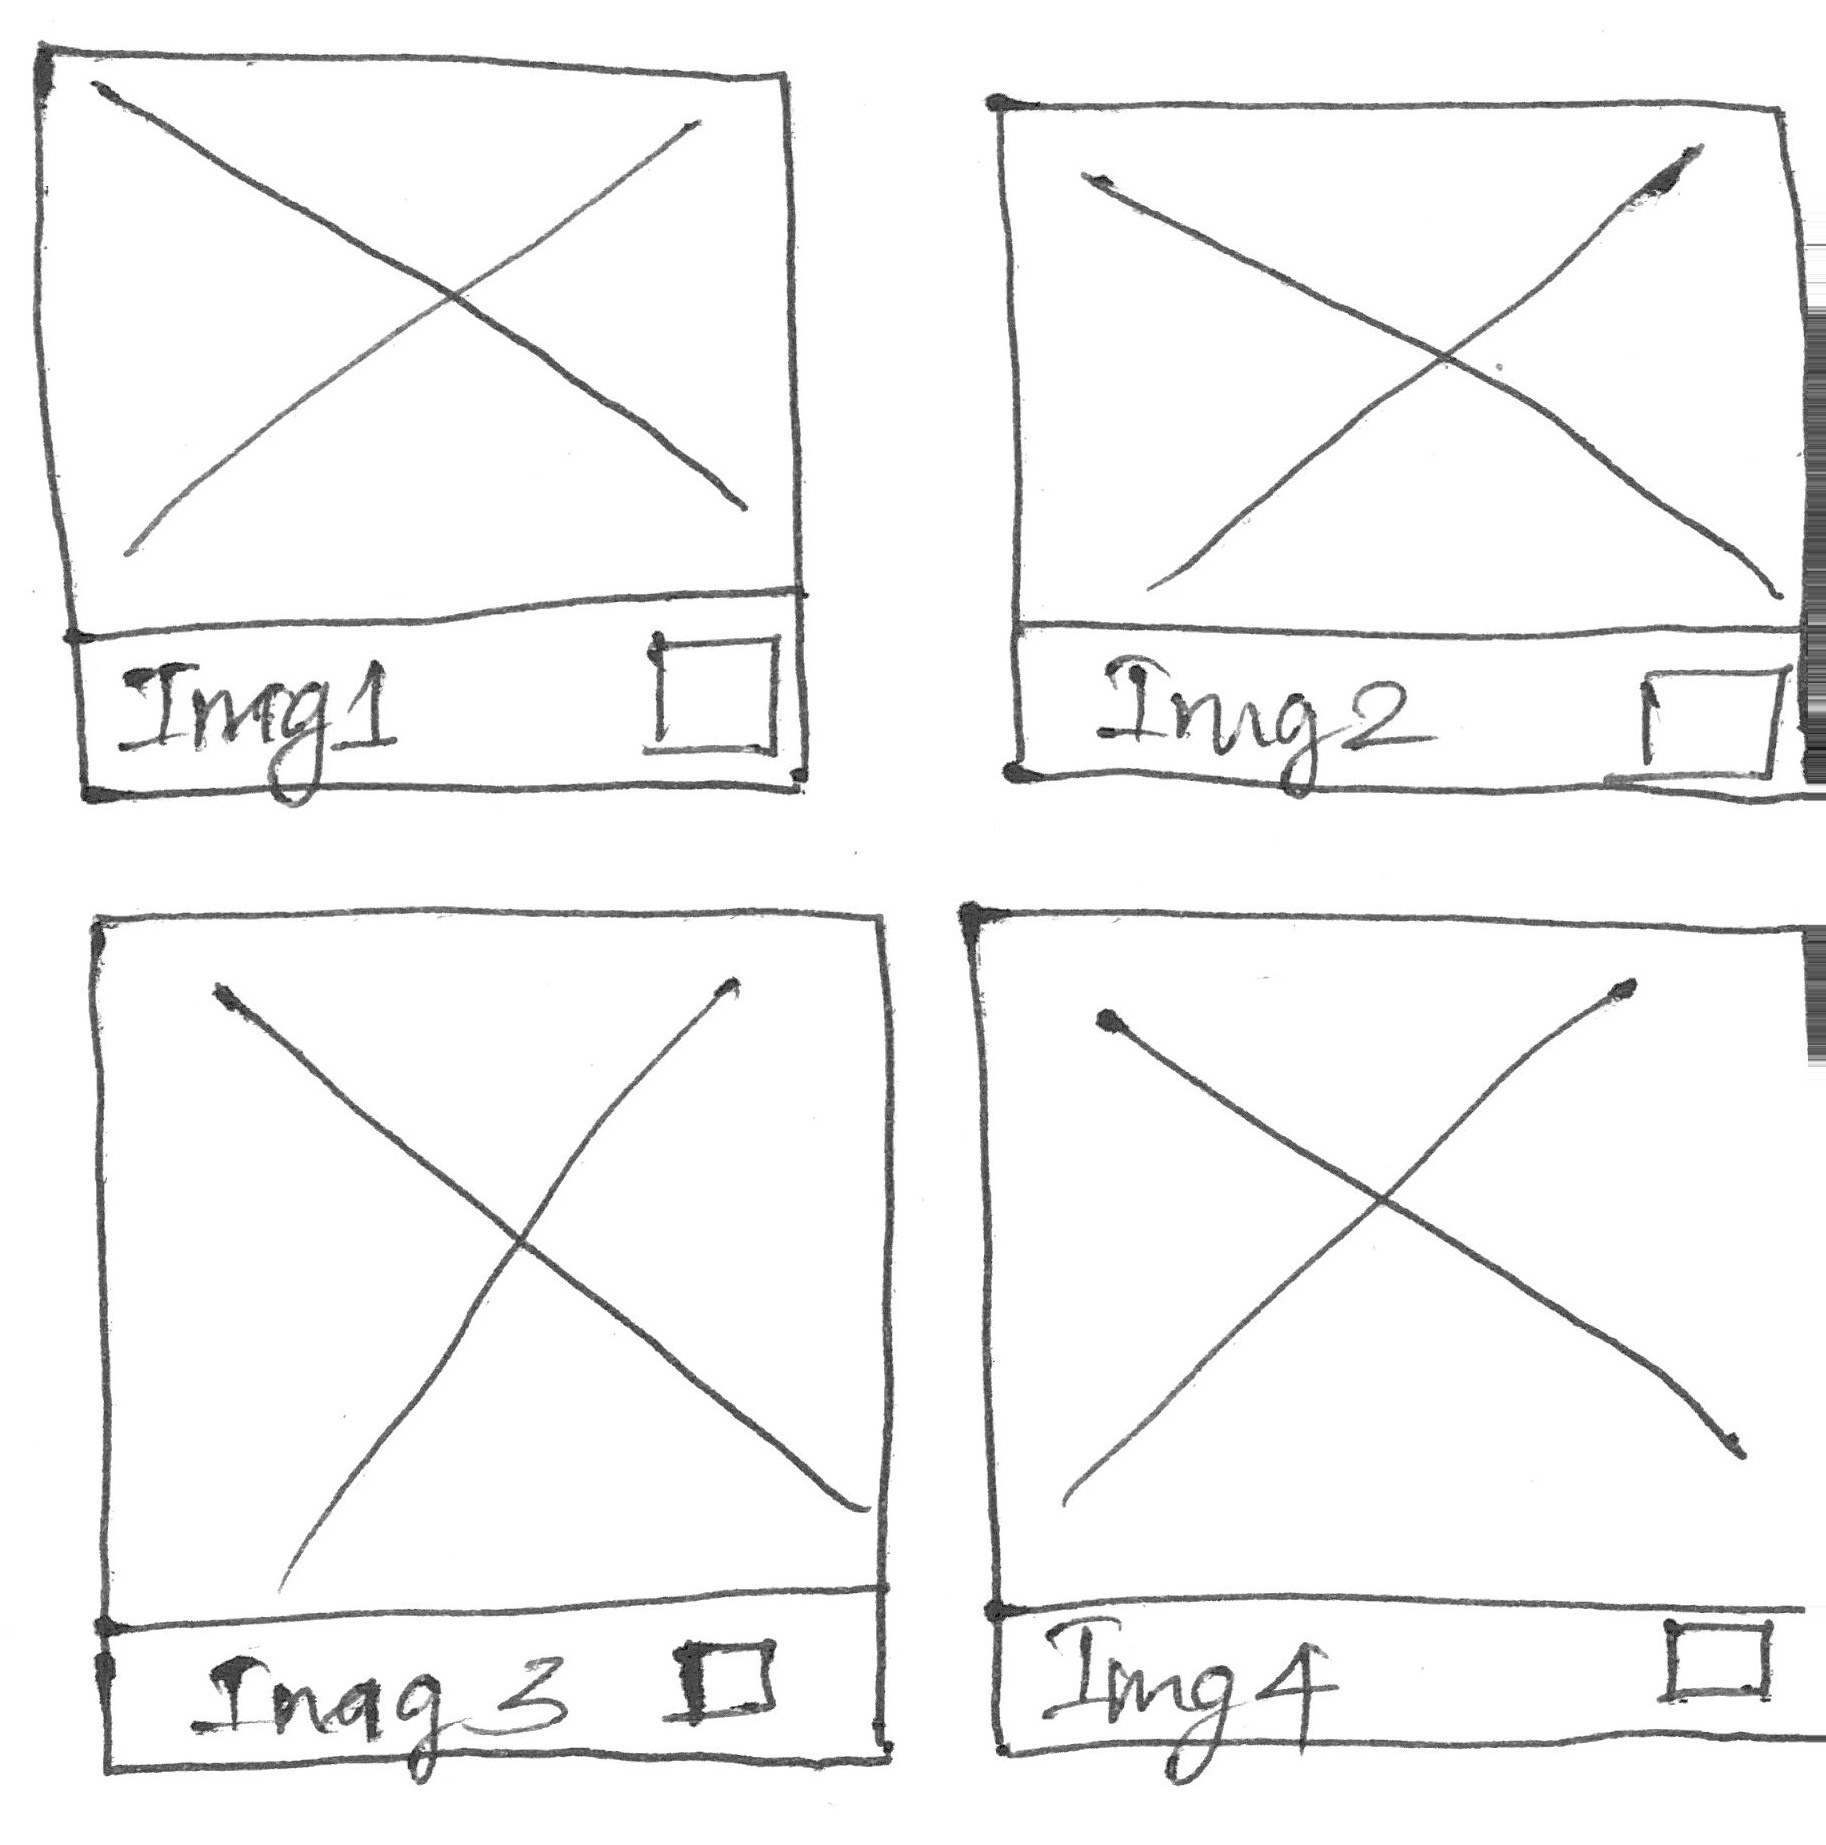 Img1
Img2
Imag 3
Img4